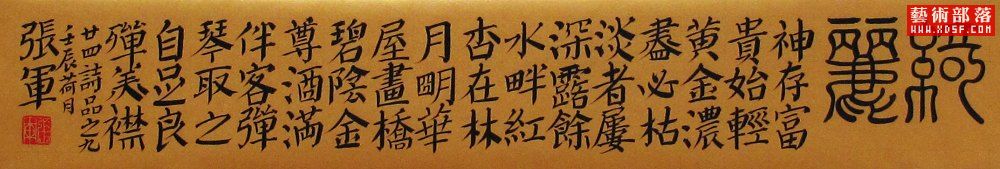 綺麗
神存富
貴始輕
黃金濃
盡必枯
淡者屢
深露餘
水畔紅
杏在林
月明華
屋畫橋
碧陰金
尊酒滿
伴客彈
琴取之
自足良
殫美襟
廿四詩品之九
壬辰荷月
張軍
藝術部落
www.XDSF.com